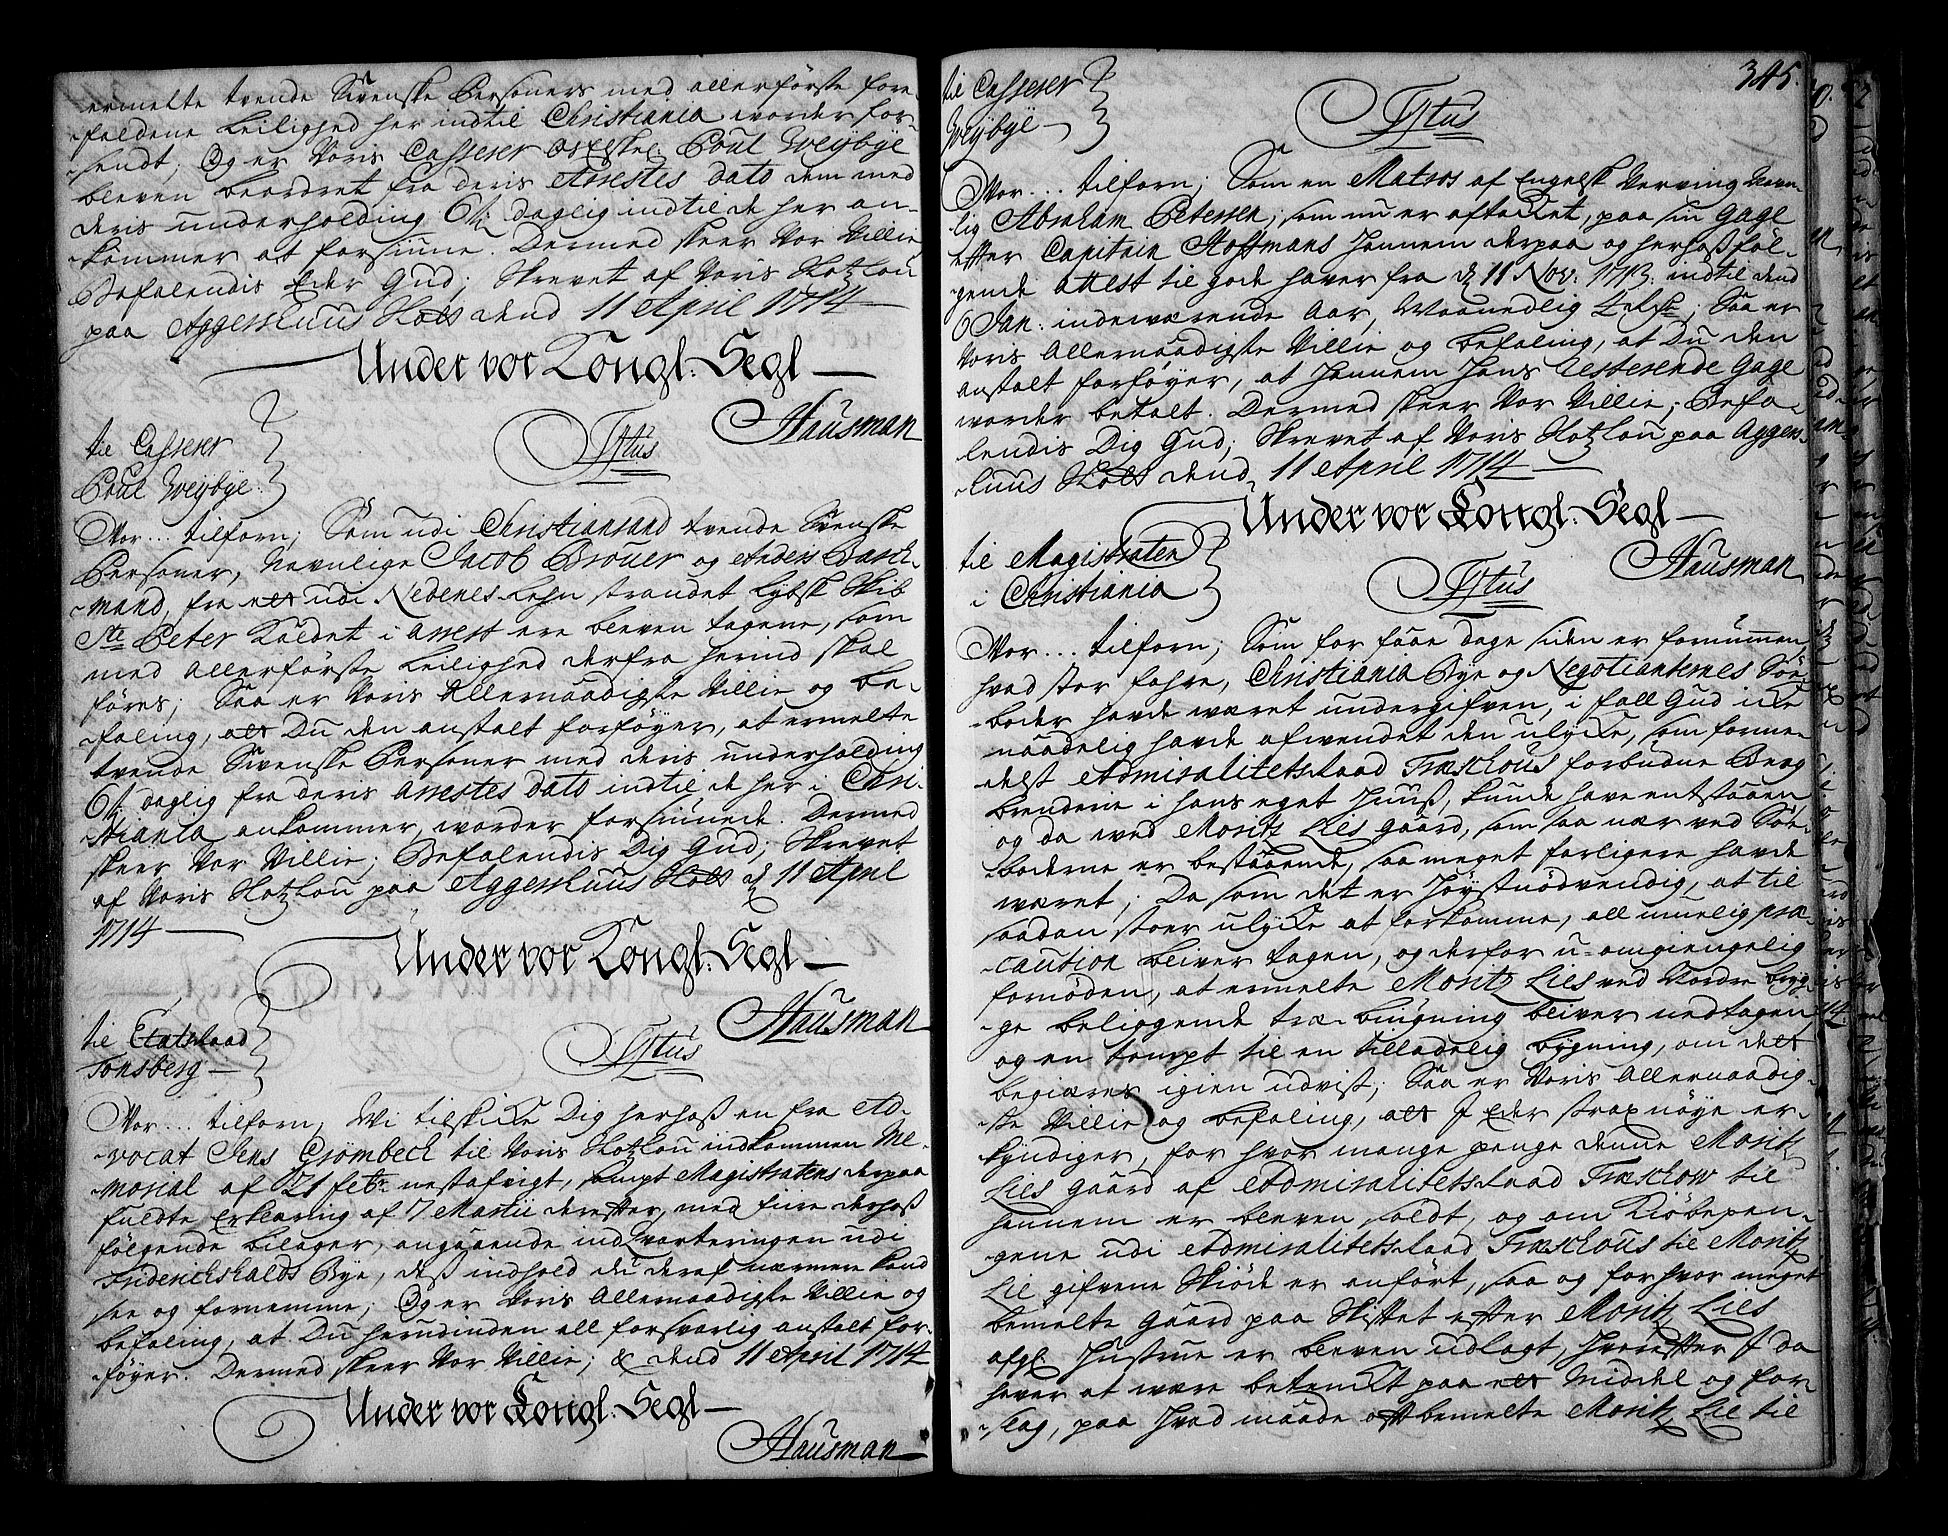 ermelte tvende Svenske Personers med allerförste fore-
-faldene Leilighed her indtil Christiania worder for-
-sendt; Og er Voris Casserer Poul Weÿbÿe
bleven beordret fra deris Arrestes Dato dem med
deris underholding 6 ß: daglig indtil de her an-
kommer at forsiune. Dermed skeer Vor Villie
Befalendis Eder Gud; Skrevet af Voris Slotzlou
paa Aggershuus Slots dend 11 April 1714
Under vor Kongl: Segl
Hausman
til Casserer
Poul Weÿbÿe.
Tÿtus
Vor... tilforn; Som udi Christiansand tvende Svenske
Persohner, Navnlige Jacob Brouer og Anders Barck-
-mand, fra et udi Nedenes Lehn strandet Lÿbsk Skib
Ste Peter Kaldet i Arrest ere bleven tagene, som
med Allerförste Leilighed derfra herind skal
föres; Saa er Voris Allernaadigste Villie og be-
faling, at Du den anstalt forföyer, at ermelte
tvende Svenske Persohner med deris underholding
6 ß: daglig fra deris Arrestes Dato indtil de her i Chri-
-stiania ankommer, worder forsiunede. Dermed
skeer Vor Villie; Befalendis Dig Gud; Skrevet
af Voris Slotzlou paa Aggershuus Slots d 11 April
1714
Under vor Kongl: Segl
Hausman
til Etatsraad
Tonsberg
Tÿtus
Vor... tilforn, Wi tilskicke Dig herhoß en fra Ad-
-vocat Jens Grömbech til Voris Slotzlou indkommen Me-
-morial af 21 febr: nestafvigt, sampt Magistratens derpaa
fuldte Erklaring af 7 Martii derefter, med fiire derhoß
fölgende bilager, angaaende indqvarteringen udi
Friderichshalds Bÿe, deß indhold du deraf nærmere kand
see og fornemme; Og er Voris Allernaadigste Villie og
befaling, at Du herudinden all forsvarlig anstalt for-
föyer. Dermed skeer Vor Villie; & dend 11 April 1714
Under vor Kongl: Segl
Hausman
345.
til Casserer
Weÿbÿe
Tÿtus
Vor... tilforn; Som en Matros af Engelsk Verving Navn-
lig Abraham Petersen; som nu er aftacket, paa sin Gage
efter Capitain Hoffmans hannem derpaa og herhoß föl-
gende Attest til gode haver fra d 11 Nov: 1713 indtil dend
6 Jan: indeværende Aar, Maanedlig 4 rdr; Saa er
Voris Allernaadigste Villie og befaling, at Du den
anstalt forföyer, at hannem hans resterende Gage
worder betalt. Dermed skeer Vor Villie; Befa-
lendis Dig Gud; Skrevet af Voris Slotzlou paa Aggers-
-huus Slots dend 11 April 1714
Under vor Kongl: Segl
Hausman
til Magistraten
i Christiania
Tÿtus
Vor... tilforn; Som for faae dage siden er fornummen,
hvad stor fahre, Christiania Bÿe og Negotianternes Söe-
-boder havde wæret undergifven, i fall Gud icke
naadelig havde afwendet den ulÿcke, som forme-
delst Admiralitetsraad Træschous forbudne Brag
brenderie i hans eget Huuß, kunde have entstaaen
og da wed Moritz Lies gaard, som saa nær ved Söe-
-boderne er bestaaende, saa meget farligere havde
wæret; Da som det er höÿstnödvendig, at til
saadan stoer ulÿcke at forkomme, all muelig præ-
-caution bliver tagen, og derfor u-omgiengelig
fornöden, at ermelte Moritz Lies ved Nordre brÿg-
-ge beliggende træ-bÿgning bliver nedtagen
og en tompt til en tilladelig bÿgning, om det
begiæres igien udvist; Saa er Voris Allernaadig-
ste Villie og befaling, at I Eder strax nöÿe er-
kÿndiger, for hvor mange penge denne Moritz
Lies gaard af Admiralitetsraad Træschow til
hannem er bleven soldt, og om Kiöbepen-
-gene udi Admiralitetsraad Træschous til Moritz
Lie gifvene Skiöde er anfört, saa og for hvor meget
bemelte gaard paa Skiftet efter Moritz Lies
afgl: Hustrue er bleven udlagt, hvorefter I da
haver at være betenckt paa et Middel og for-
-slag, paa hvad maade oftbemelte Moritz Lie til